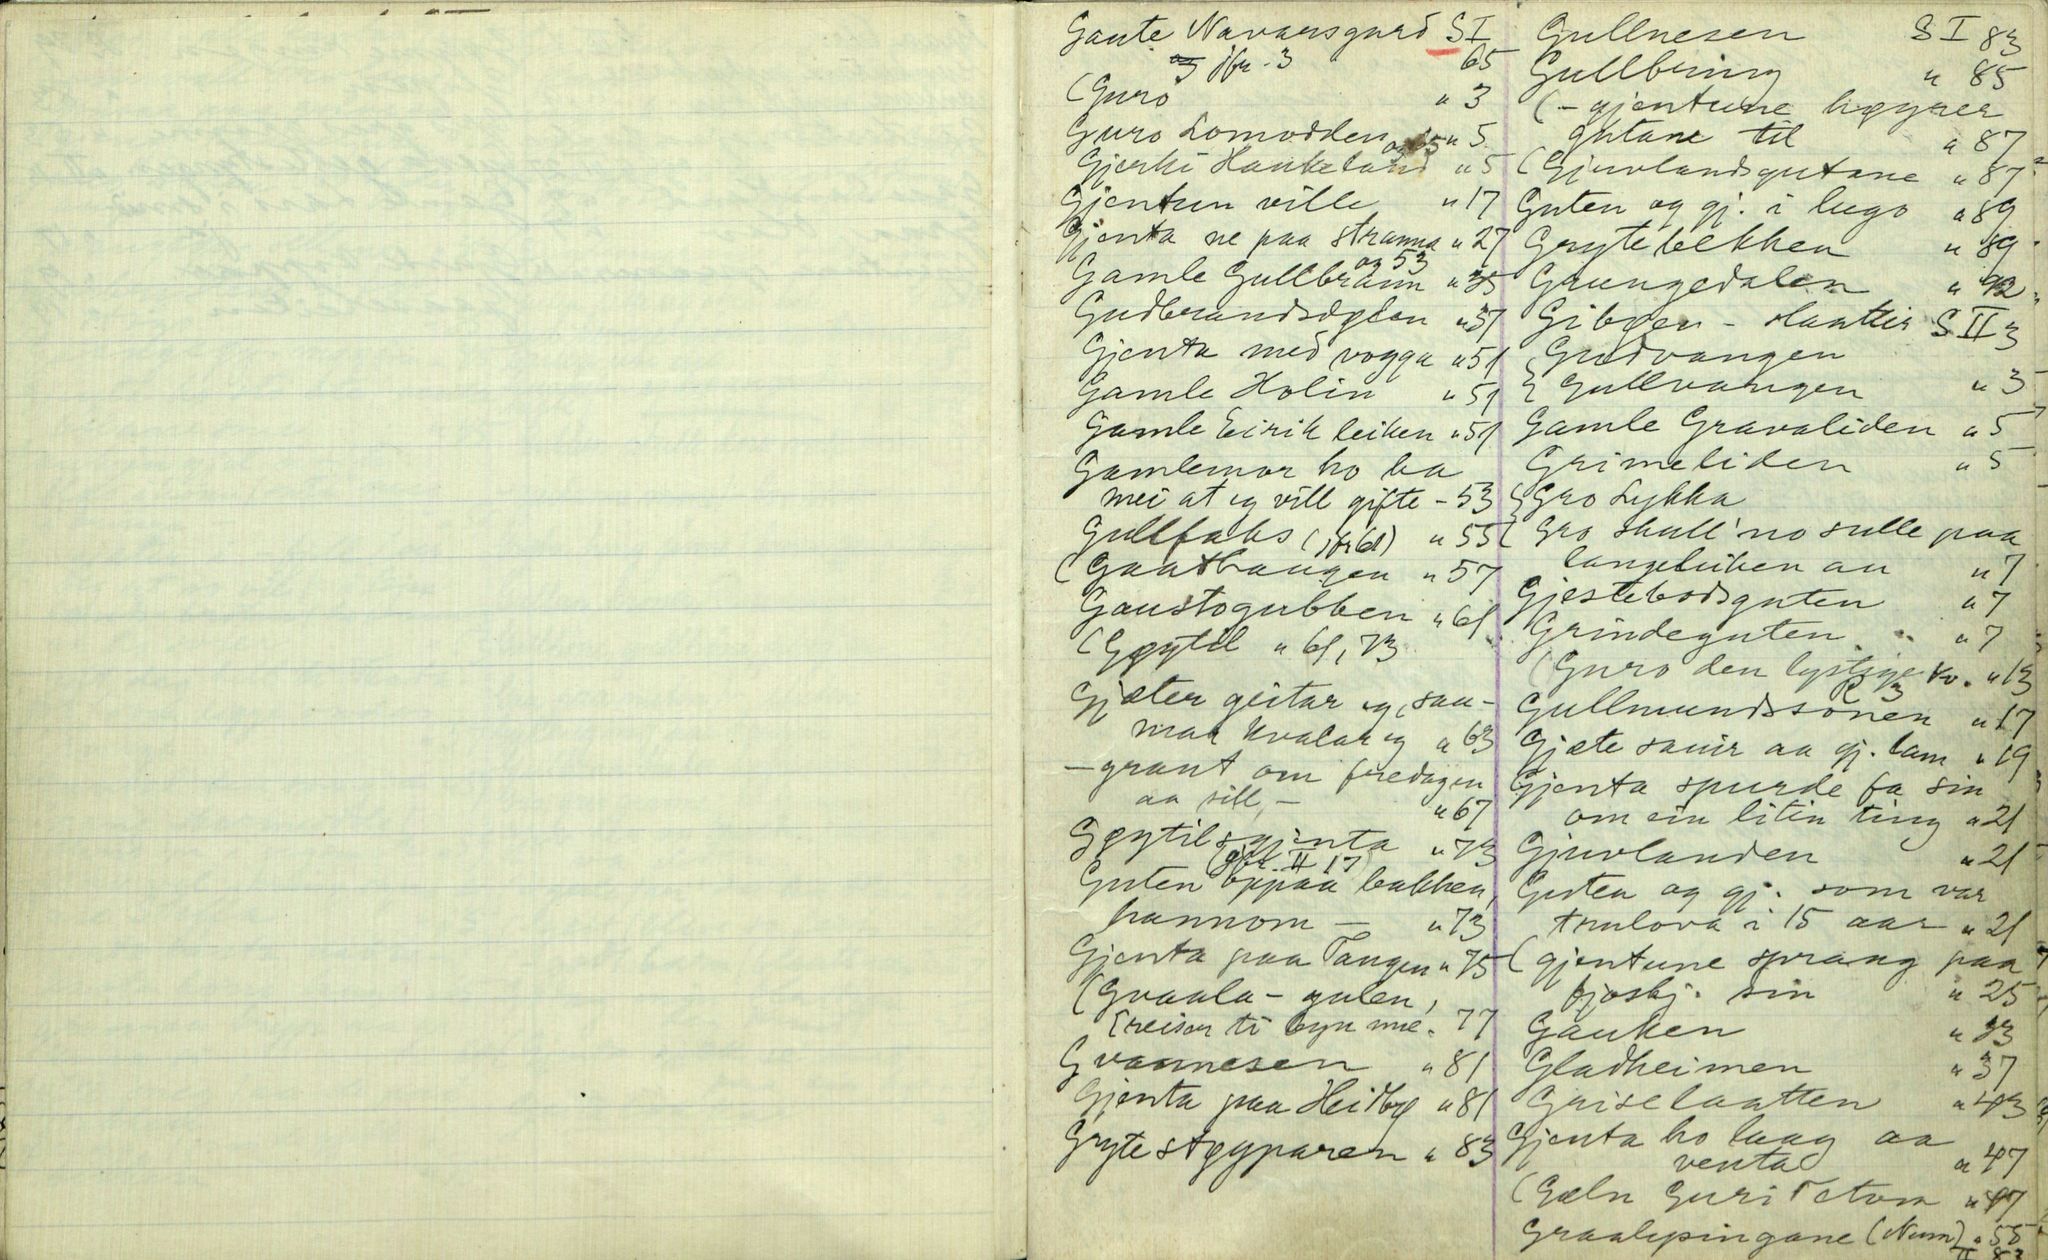 Gaute Navarsgard SI
og jfr. 3 65
(Guro " 3
Guro Lomodden " 5
Gjerki Haukeland " 5
Gjentun ville " 17
Gjenta ne paa stranna " 27
og 53
Gamle Gullbrann " 35
Gudbrandsdølen " 37
Gjenta med vogga " 51
Gamle Holin " 51
Gamle Eirik leiken " 51
Gamlemor ho ba
mei at eg vill gifte - 53
Gullfaks (jfr 61) " 55
(Gaathaugen " 57
Gaustogubben " 61
(Gøytil " 61, 73
Gjæter geitar og sau-
mar kvalar eg " 63
- grant om fredagen
aa sill, - " 67
Gøytilsgjenta " 73
(jfr. II 17)
Guten oppaa bakken,
hannom - " 73
Gjenta paa Tangen " 75
(Graala-gulen,
(reiser ti byn me. 77
Gvannesen " 81
Gjenta paa Heidbø " 81
Grytestøyparen " 83
Gullnesen S I 83
Gullbring " 85
(- gjentune høyrer
gutane til " 87
(Gjuvlandsgutane " 87
Guten og gj. i lugo " 89
Grytebekken " 89
Grungedalen " 92
Gibøen - slaattir S II 3
{ Gudvangen
{ Gullvangen " 3
Gamle Gravaliden " 5
Grimeliden " 5
{ Gro Lykka
{ Gro skull' no sulle paa
langeleiken au " 7
Gjestebodsguten " 7
Grindeguten " 7
(Guro den lystige kv. " 13
Gullmundssonen " 17
Gjæte sauir aa gj. lam " 19
Gjenta spurde fa sin
om ein litin ting " 21
Gjuvlanden " 21
Guten og gj. som var
trulova i 15 aar " 21
(gjentune sprang paa
fjoshj. sin " 25
Gauken " 33
Gladheimen " 37
Griselaatten " 43
Gjenta ho laag aa
venta " 47
(Gæln Guri Tetom " 47
Graalysingane (Num) " 55